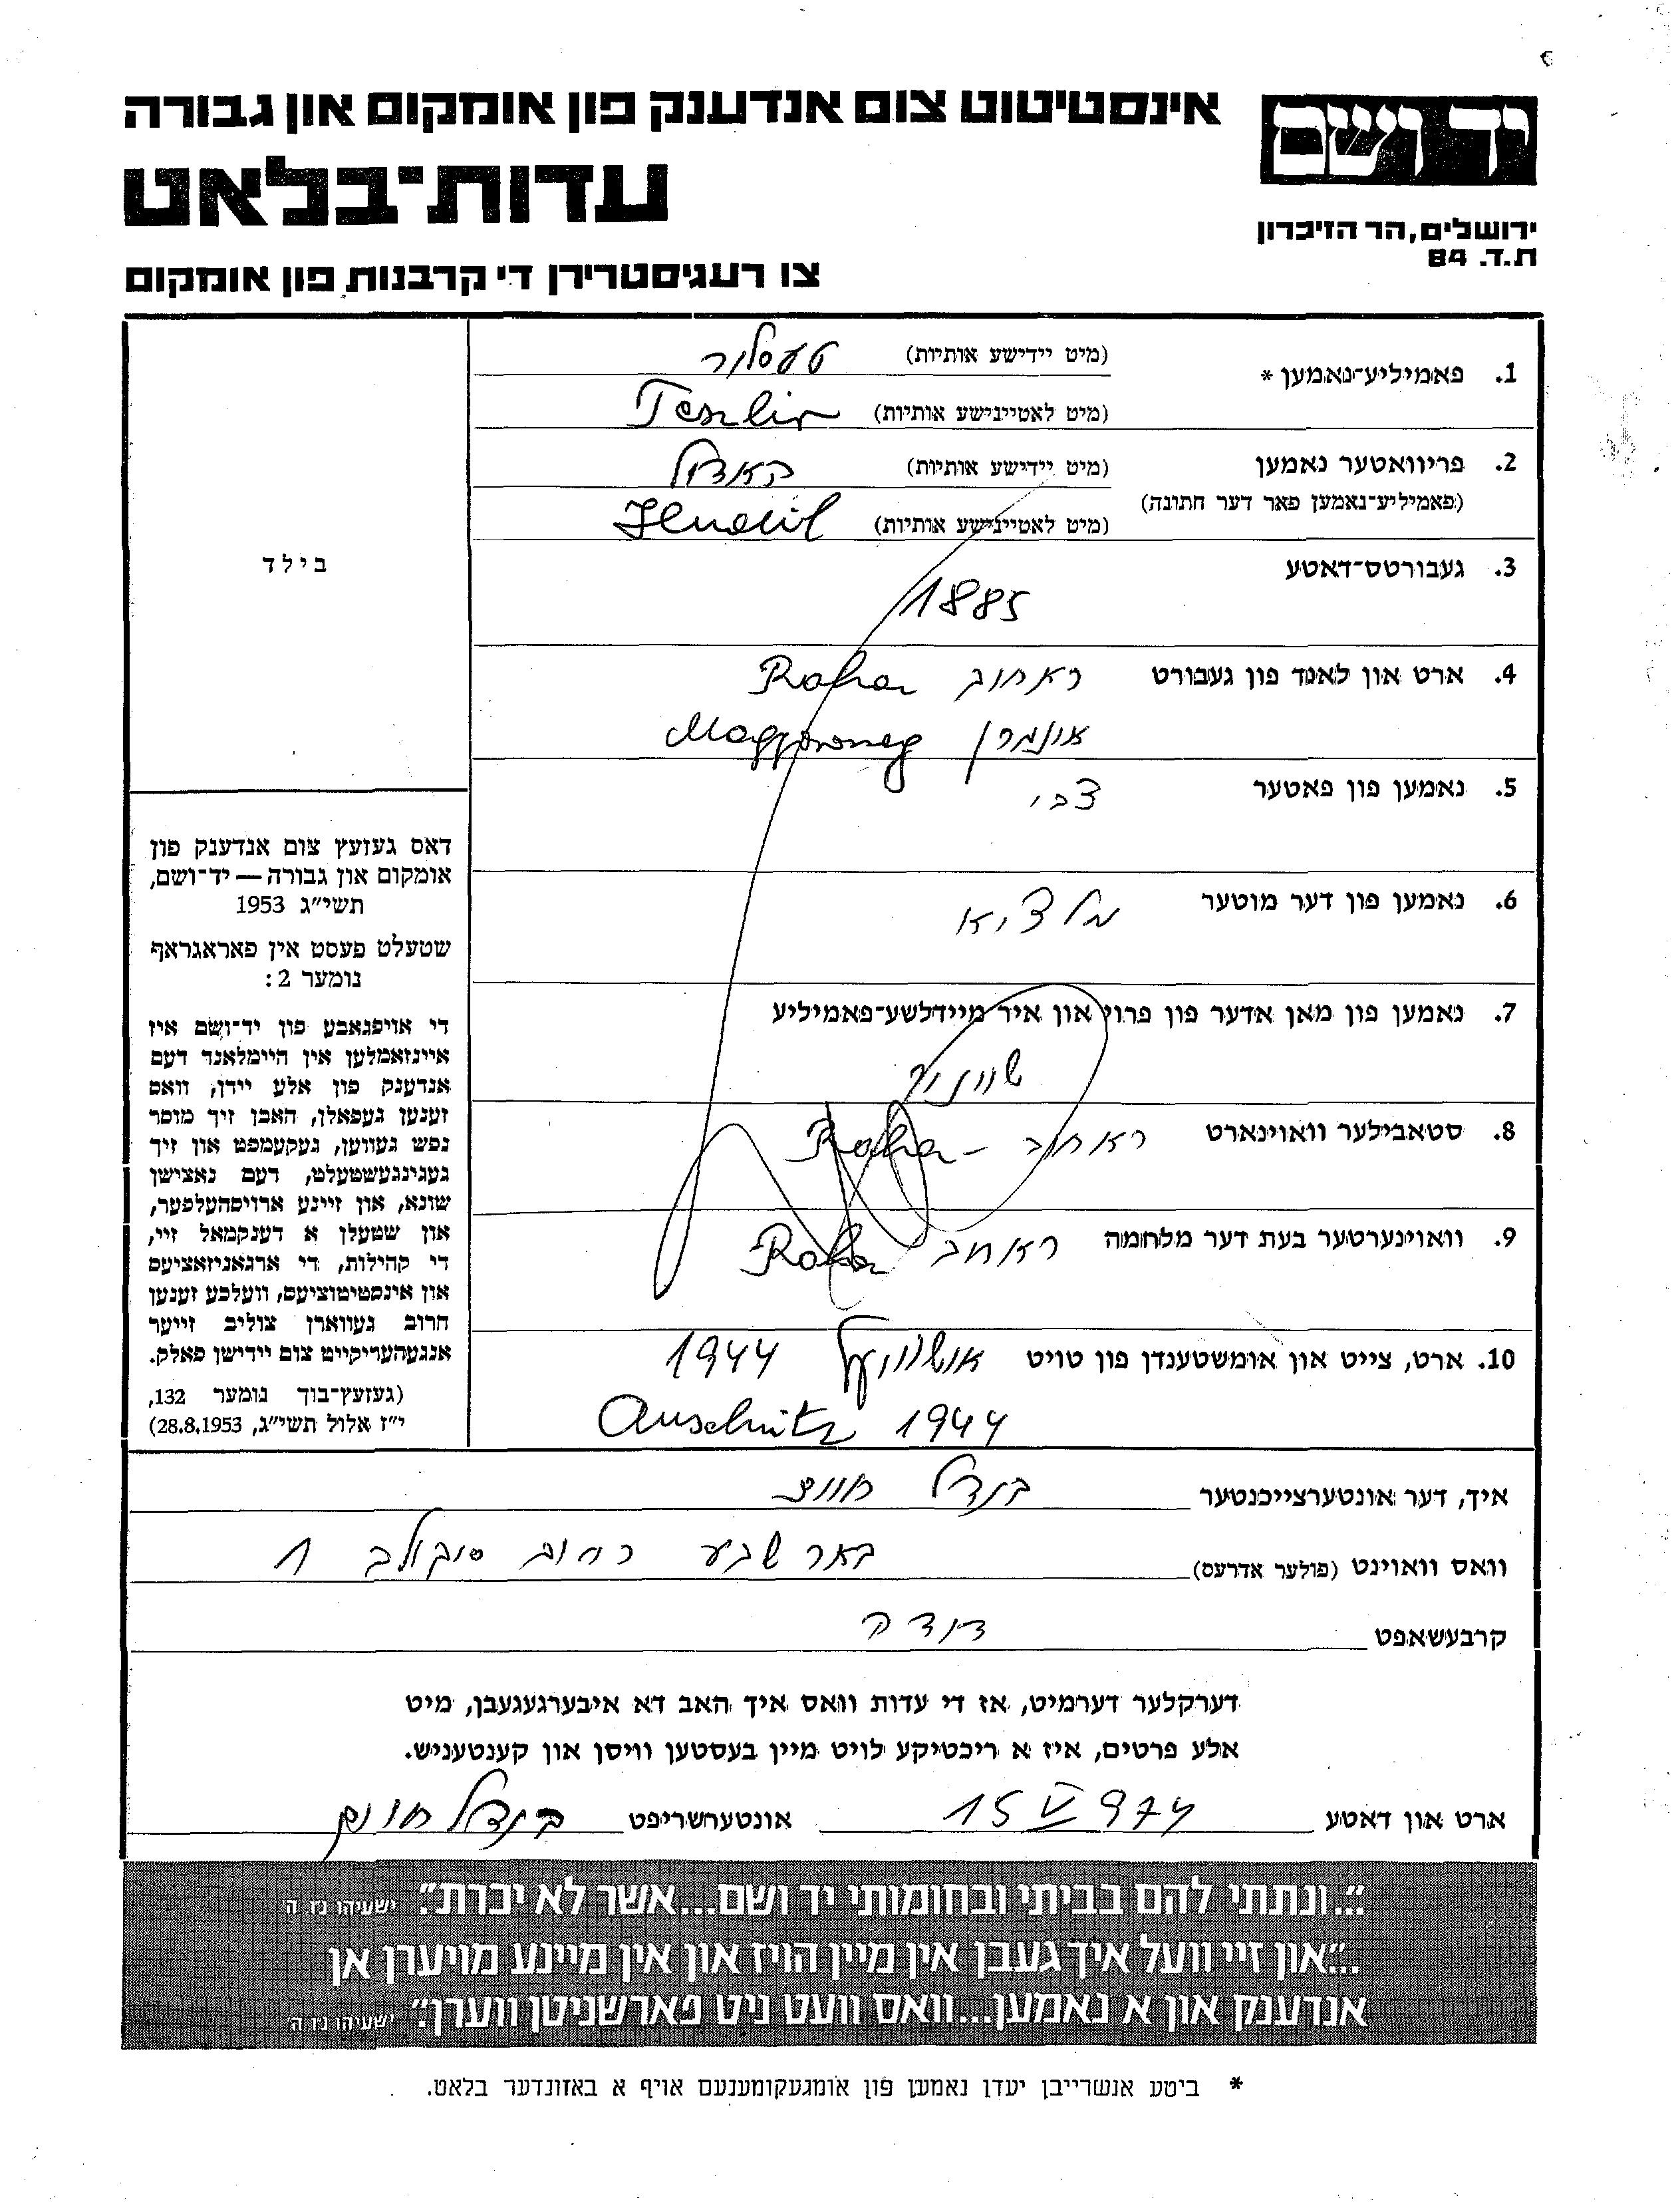 יד ושם
ירושלים, הר הזיכרון
ת.ד. 84
אינסטיטוט צום אנדענק פון אומקום און גבורה
עדות־בלאט
צו רעגיסטרירן די קרבנות פון אומקום
1. פאמיליע־נאמען *
(מיט יידישע אותיות) טעסליר
(מיט לאטיינישע אותיות) Teszlir
2. פריוואטער נאמען
(פאמיליע־נאמען פאר דער חתונה)
(מיט יידישע אותיות)
(מיט לאטיינישע אותיות)
3. געבורטס־דאטע
1885
4. ארט און לאנד פון געבורט ראחוב Raho
אונגרן
5. נאמען פון פאטער
צבי
6. נאמען פון דער מוטער
7. נאמען פון מאן אדער פון פרוי און איר מיידלשע־פאמיליע
8. סטאבילער וואוינארט ראחוב - Raho
9. וואוינערטער בעת דער מלחמה ראחוב Raho
10. ארט, צייט און אומשטענדן פון טויט אושוויץ 1944
Auschwitz 1944
בילד
דאס געזעץ צום אנדענק פון
אומקום און גבורה — יד־ושם,
תשי״ג 1953
שטעלט פעסט אין פאראגראף
נומער 2:
די אויפגאבע פון יד־ושם איז
איינזאמלען אין היימלאנד דעם
אנדענק פון אלע יידן, וואס
זענען געפאלן, האבן זיך מוסר
נפש געווען, געקעמפט און זיך
געגינגעשטעלט, דעם נאצישן
שונא, און זיינע ארויסהעלפער,
און שטעלן א דענקמאל זיי,
די קהילות, די ארגאניזאציעס
און אינסטיטוציעס, וועלכע זענען
חרוב געווארן צוליב זייער
אנגעהעריקייט צום יידישן פאלק.
(געזעץ־בוך נומער 132,
י״ז אלול תשי״ג, 28.8.1953)
איך, דער אונטערצייכנטער
וואס וואוינט (פולער אדרעס) באר שבע רחוב סוקולוב 1
קרבעשאפט דודה
דערקלער דערמיט, אז די עדות וואס איך האב דא איבערגעגעבן, מיט
אלע פרטים, איז א ריכטיקע לויט מיין בעסטען וויסן און קענטעניש.
ארט און דאטע 15 V 974 אונטערשריפט
״...ונתתי להם בביתי ובחומותי יד ושם...אשר לא יכרת״. ישעיהו נ״ו ה
״...און זיי וועל איך געבן אין מיין הויז און אין מיינע מויערן אן
אנדענק און א נאמען...וואס וועט ניט פארשניטן ווערן״. ישעיהו נ״ו ה׳
* ביטע אנשרייבן יעדן נאמען פון אומגעקומענעם אויף א באזונדער בלאט.